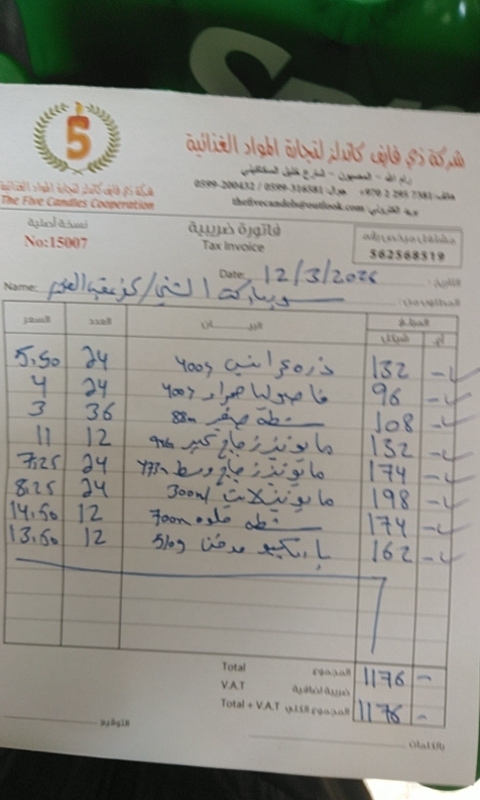 5
شركة ذي فايف كاندلز لتجارة المواد الغذائية
رام الله - المصيون - شارع خليل السكاكيني
هاتف: 7381 295 2 970+ جوال: 0599-316581 / 0599-200432
بريد الكتروني: thefivecandels@outlook.com
شركة ذي فايف كاندلز لتجارة المواد الغذائية
The Five Candles Cooperation
نسخة أصلية
No:15007
فاتورة ضريبية
Tax Invoice
مشتغل مرخص رقم
562568519
Date: 12/3/2026 التاريخ:
Name: سوبرماركت الشني / المطلوب من:
السعر العدد البيــــــان المبلغ
شيكل أغ
5.50 24 ذره 400g 132 -
4 24 فاصوليا حمراء 400g 96 -
3 36 شطة صغير 88m 108 -
11 12 مايونيز زجاج كبير 132 -
7.25 24 مايونيز زجاج وسط 174 -
8.25 24 مايونيز لايت 300ml 198 -
14.50 12 شطة حلوه 700m 174 -
13.50 12 باربكيو مدخن 510g 162 -
Total المجموع 1176 -
V.A.T ضريبة اضافية
Total + V.A.T المجموع الكلي 1176 -
التوقيع
بالكلمات